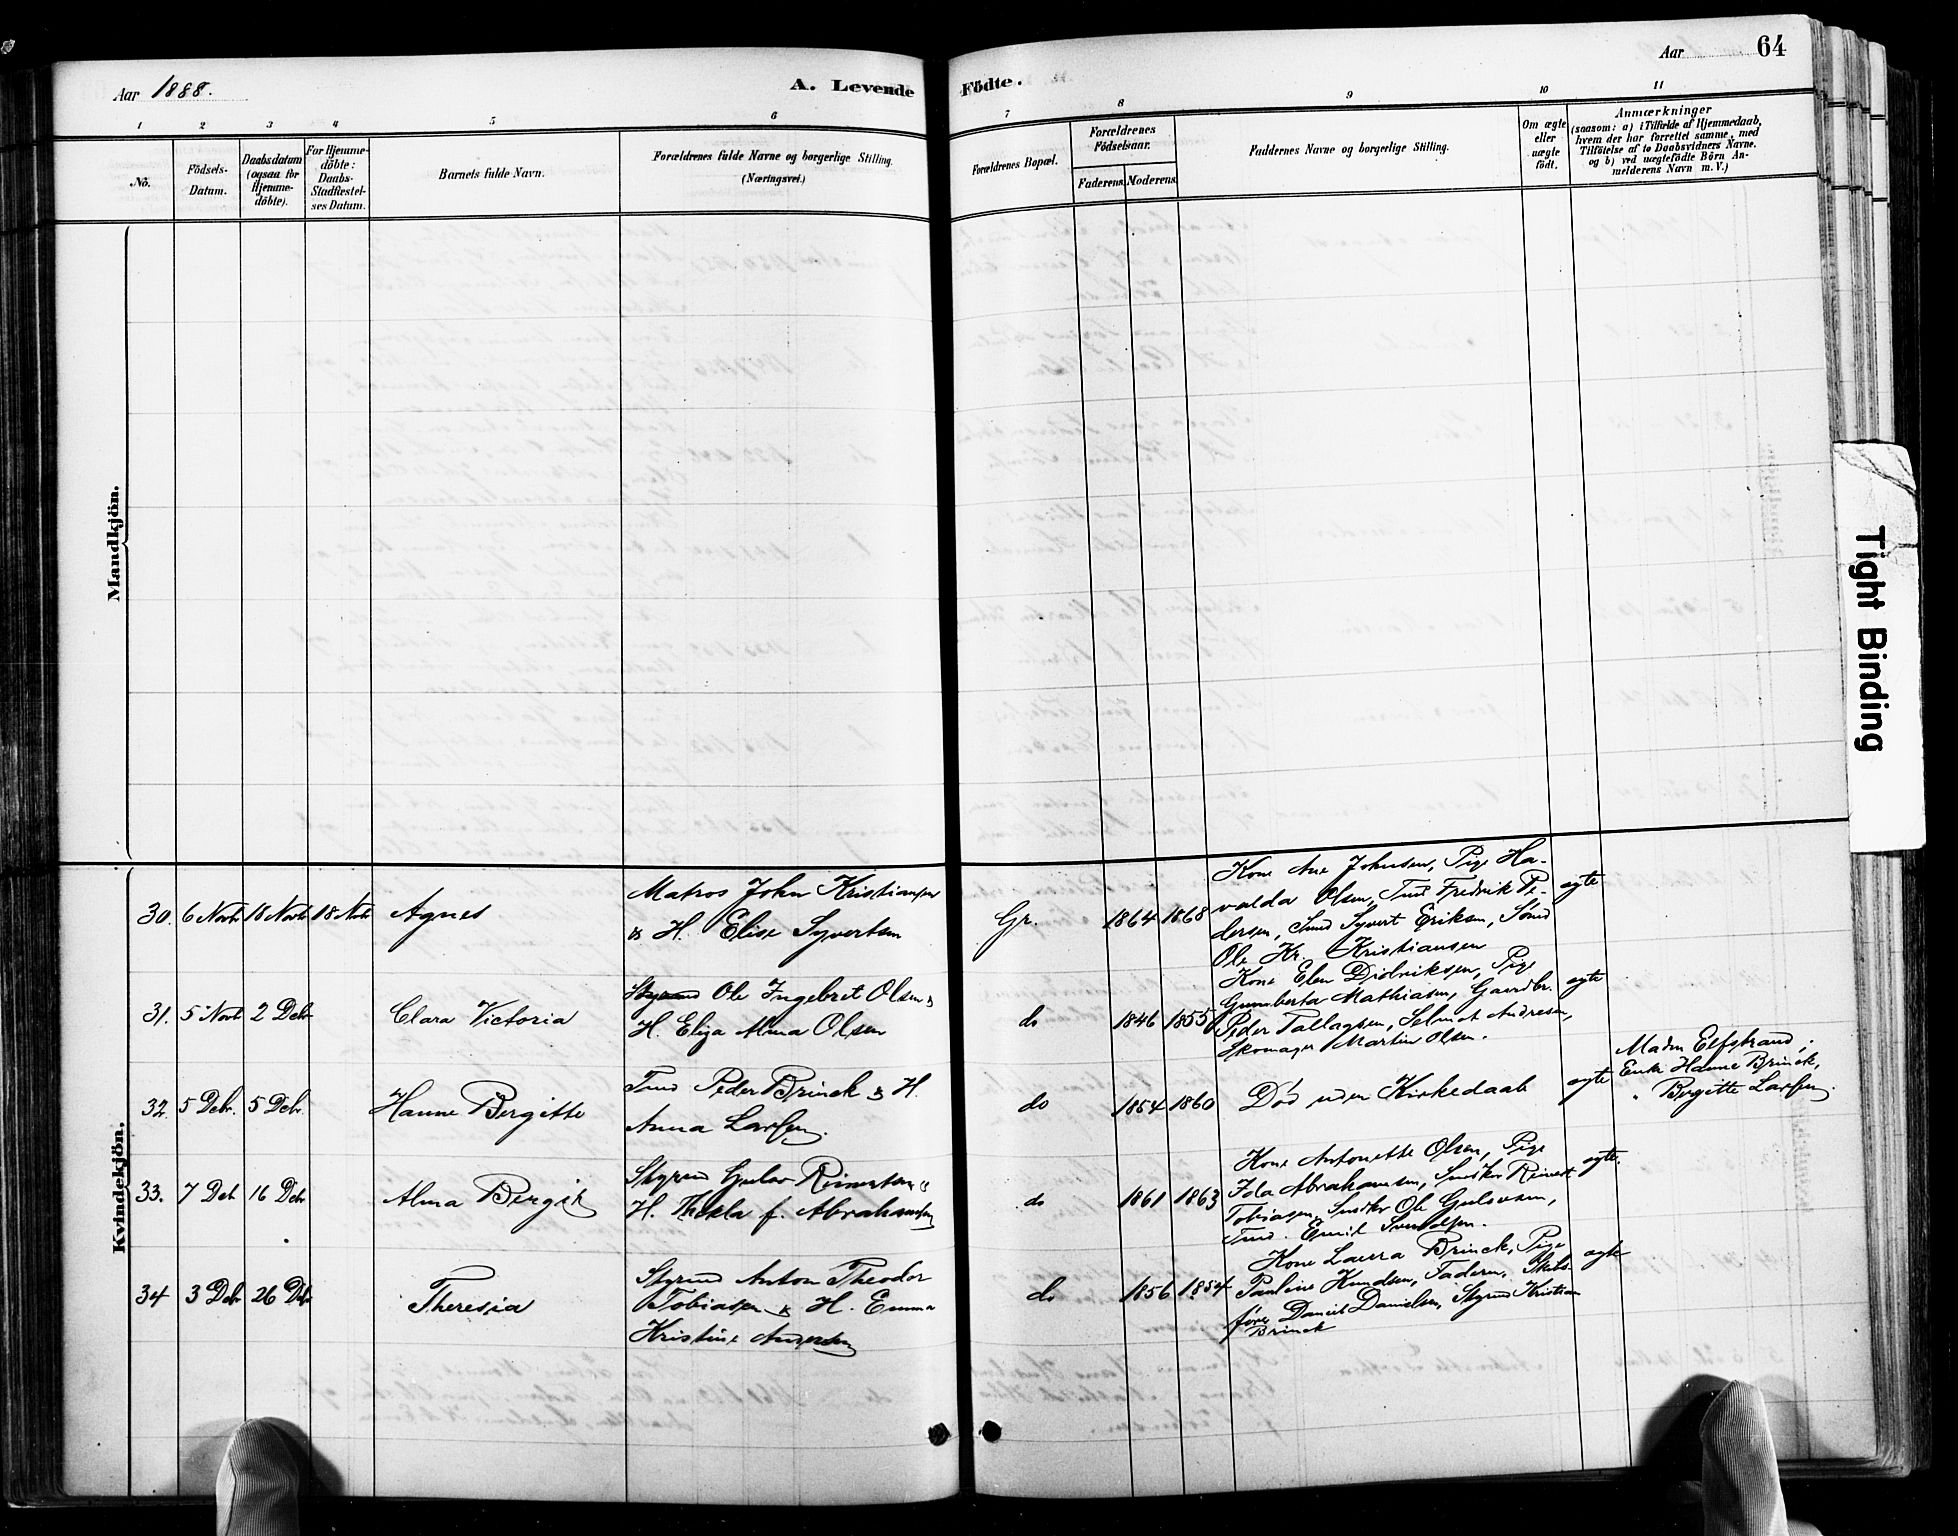 Aar 1888.
A. Levende Födte.
Aar
64
1
2
3
4
5
6
7
8
9
10
11
No.
Födsels-
Datum.
Daabsdatum
(ogsaa for
Hjemme-
döbte).
For Hjemme-
döbte:
Daabs-
Stadfæstel-
ses Datum.
Barnets fulde Navn.
Forældrenes fulde Navne og borgerlige Stilling.
(Næringsvei.)
Forældrenes Bopæl.
Forældrenes
Födselsaar.
Faderens.
Moderens.
Faddernes Navne og borgerlige Stilling.
Om ægte
eller
uægte
födt.
Anmærkninger
(saasom: a) i Tilfælde af Hjemmedaab,
hvem der har forrettet samme, med
Tilföielse af to Daabsvidners Navne.
og b) ved uægtefödte Börn An-
melderens Navn m. V.)
Mandkjön.
Kvindekjön.
Tight Binding
30. 6 Novb 18 Novb 18 Novb Agnes
Matros John Kristiansen
& H. Elise Syvertsen
Gr. 1864 1868
Kone Ane Johnsen, Pige Ha-
valda Olsen, Tmd Fredrik Pe-
dersen, Smd Syvert Eriksen, Sömd
Ole Kr. Kristiansen
ægte
31. 5 Novb 2 Debr Clara Victoria
Styrmd Ole Ingebret Olsen &
H. Eliza Alma Olsen
do 1846 1855
Kone Elen Didriksen, Pige
Gumberta Mathiasen, Gaardbr.
Peder Tallagsen, Andresen,
Skomager Martin Olsen.
ægte
32. 5 Debr. 5 Debr. Hanne Bergitte
Tmd Peder Brinck & H.
Anna Larsen.
do 1854 1860
Död uden Kirkedaab
ægte
Madm Elfstrand;
Enke Hanne Brinck,
" Bergitte Larsen.
33. 7 Deb 16 Debr Alma Bergit
Styrmd Gulov Reinertsen &
H. Thekla f. Abrahamsen
do 1861 1863
Kone Antonette Olsen, Pige
Ida Abrahamsen, Reinert
Tobiasen, Ole Gulovsen,
Tmd. Emil Svendsen.
ægte.
34 3 Debr 26 Debr Theresia
Styrmd Anton Theodor
Tobiasen & H. Emma
Kristine Andersen
do 1856 1854
Kone Laura Brinck, Pige
Pauline Knudsen, Faderen, Skibs-
förer Daniel Danielsen, Styrmd Kristian
Brinck
ægte